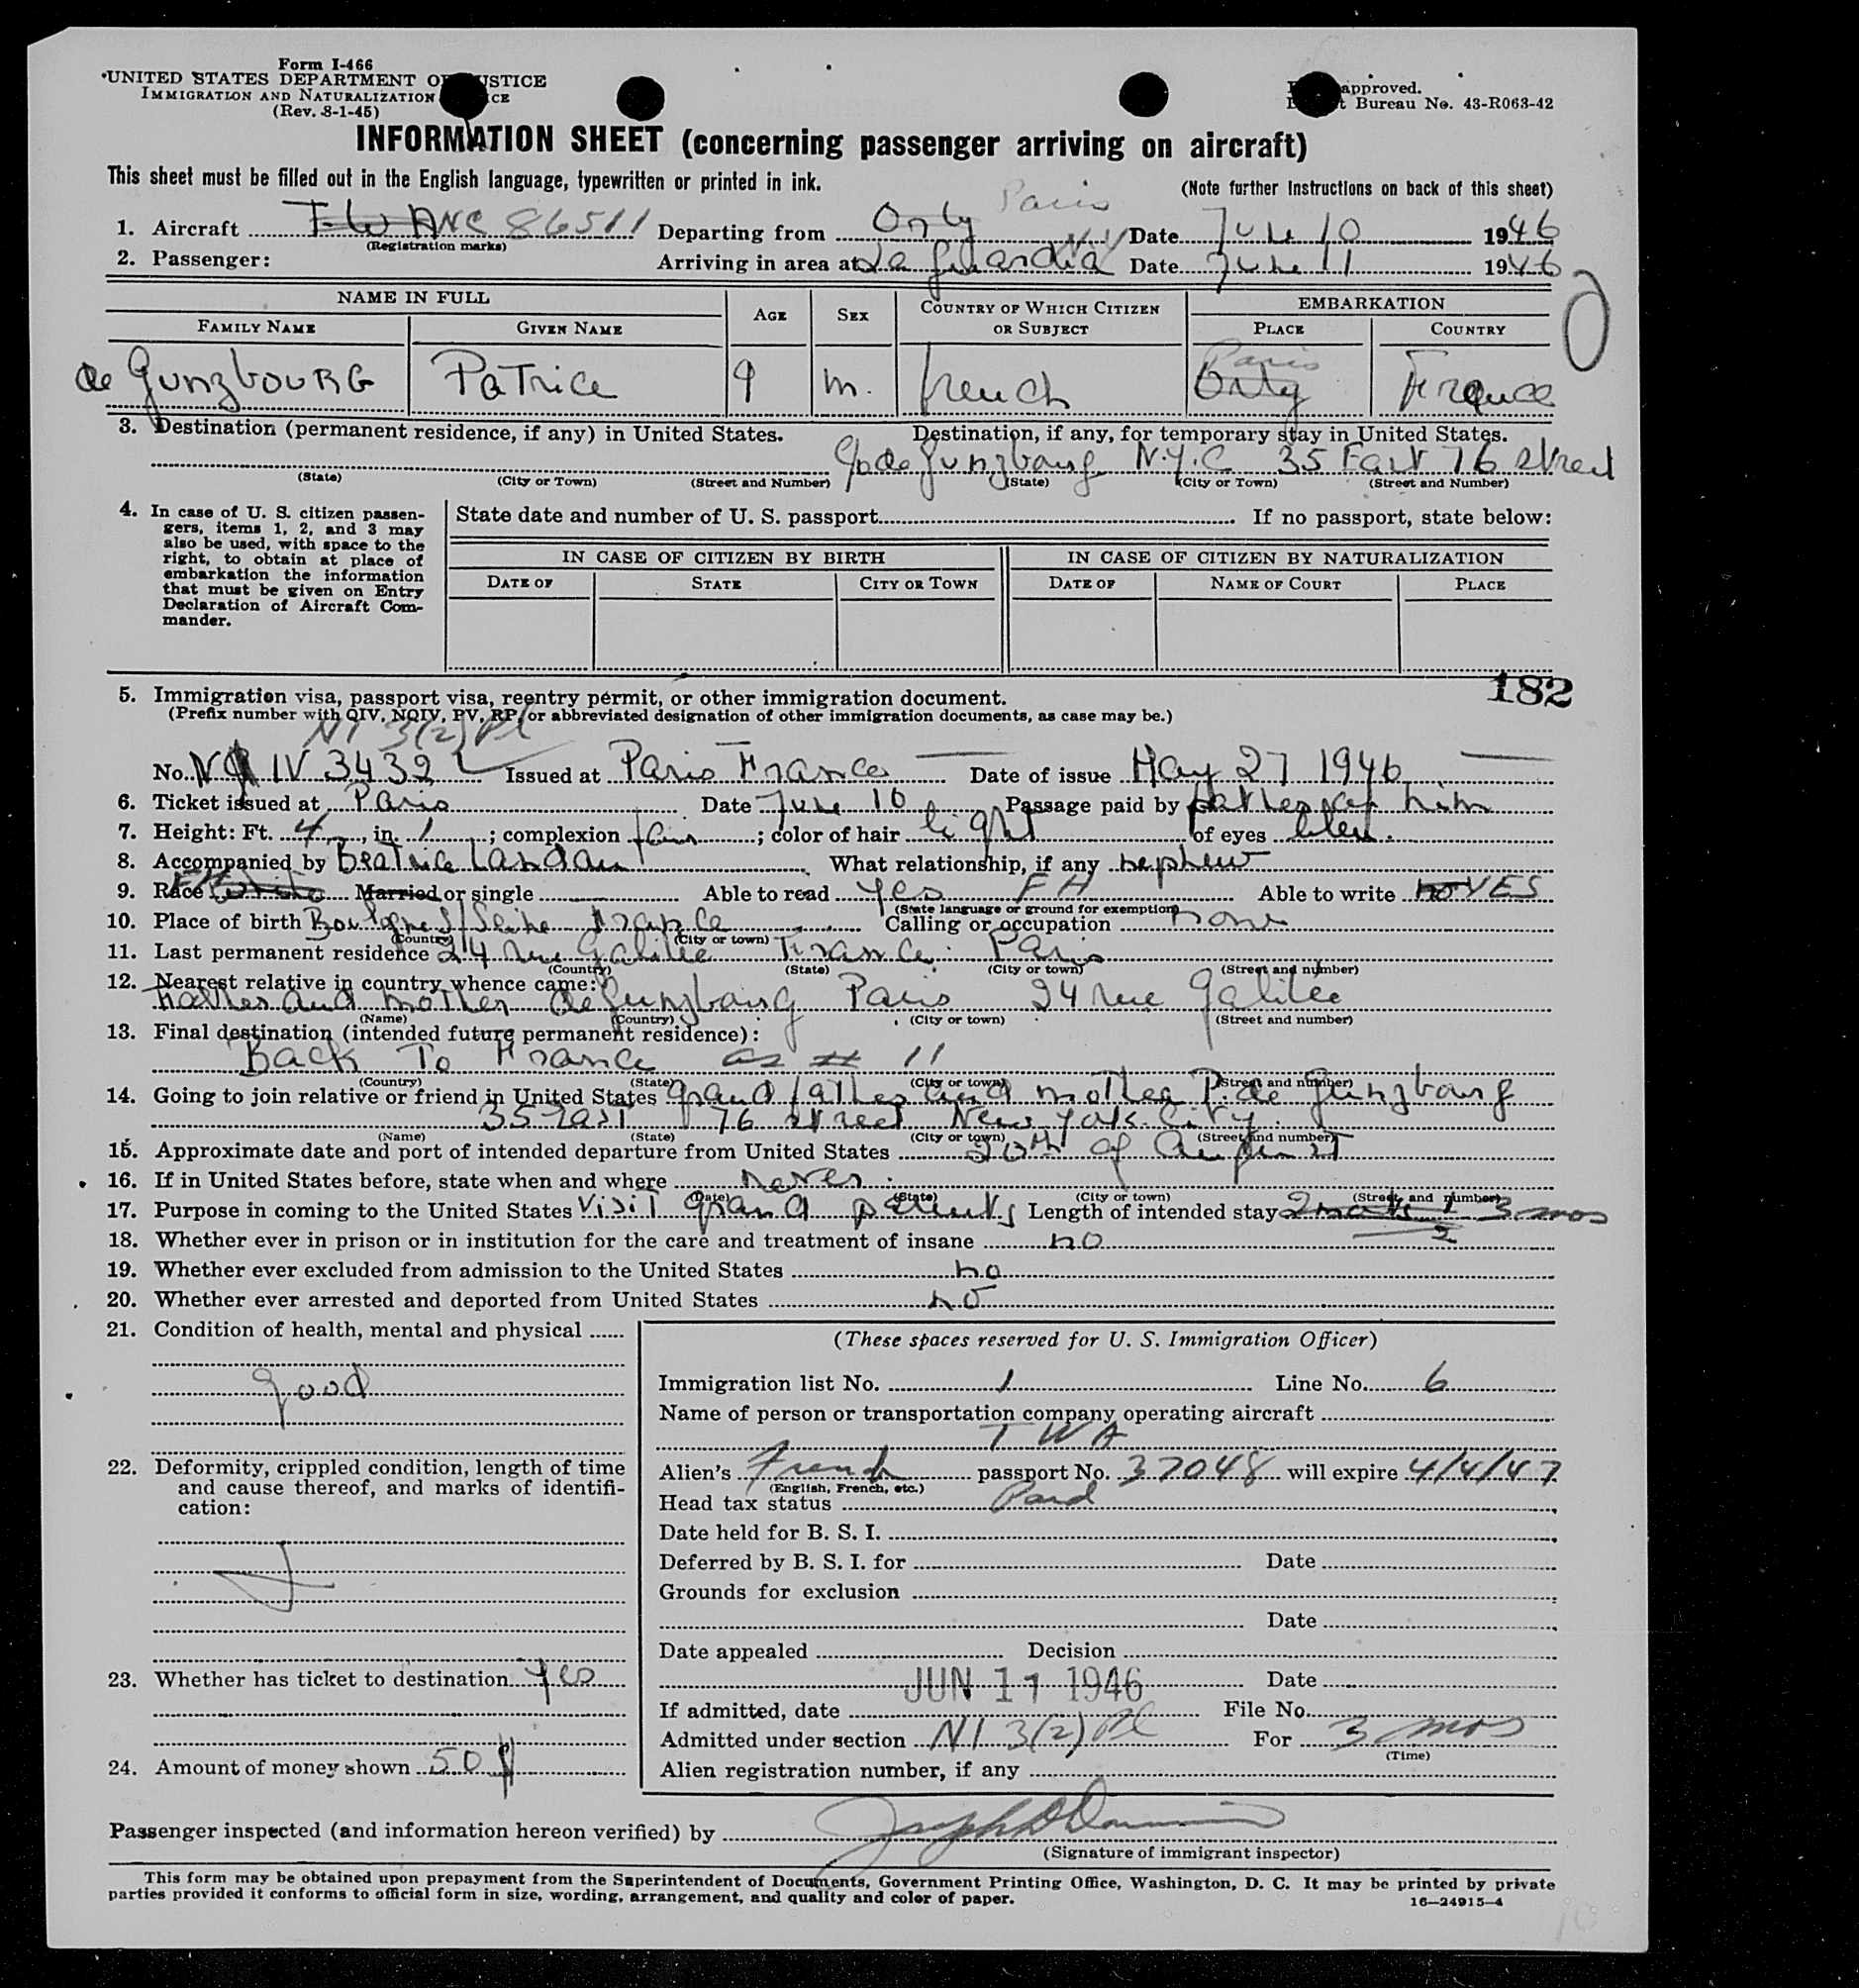 Form I-466
UNITED STATES DEPARTMENT OF JUSTICE
IMMIGRATION AND NATURALIZATION
(Rev. 8-1-45)
approved.
Bureau No. 43-R063-42
INFORMATION SHEET (concerning passenger arriving on aircraft)
This sheet must be filled out in the English language, typewritten or printed in ink.
(Note further instructions on back of this sheet)
Paris
1. Aircraft NC 86511 Departing from Orly Date June 10 1946
(Registration marks)
2. Passenger: Arriving in area at La Guardia N.Y Date June 11 1946
NAME IN FULL AGE SEX COUNTRY OF WHICH CITIZEN OR SUBJECT EMBARKATION
FAMILY NAME GIVEN NAME PLACE COUNTRY
Paris
de GunzbouRG PaTrice 9 m. french Orly France
3. Destination (permanent residence, if any) in United States. Destination, if any, for temporary stay in United States.
c/o de Gunzbourg N.Y.C 35 East 76 street
(State) (City or Town) (Street and Number) (State) (City or Town) (Street and Number)
4. In case of U. S. citizen passengers, items 1, 2, and 3 may also be used, with space to the right, to obtain at place of embarkation the information that must be given on Entry Declaration of Aircraft Commander.
State date and number of U. S. passport If no passport, state below:
IN CASE OF CITIZEN BY BIRTH IN CASE OF CITIZEN BY NATURALIZATION
DATE OF STATE CITY OR TOWN DATE OF NAME OF COURT PLACE
182
5. Immigration visa, passport visa, reentry permit, or other immigration document.
(Prefix number with QIV, NQIV, PV, RP, or abbreviated designation of other immigration documents, as case may be.)
NI 3(2) Pl
No. NQIV 3432 Issued at Paris France Date of issue May 27 1946
6. Ticket issued at Paris Date June 10 Passage paid by him
7. Height: Ft. 4, in. 1; complexion fair; color of hair light of eyes bleu.
8. Accompanied by Beatrice Landau What relationship, if any nephew
9. Race Married or single Able to read yes FH Able to write no YES
(State language or ground for exemption)
10. Place of birth Boulogne S/Seine France Calling or occupation none
(Country) (City or town)
11. Last permanent residence 24 rue Galilee France Paris
(Country) (State) (City or town) (Street and number)
12. Nearest relative in country whence came:
father and mother de Gunzbourg Paris 24 rue Galilee
(Name) (Country) (City or town) (Street and number)
13. Final destination (intended future permanent residence):
Back To France as # 11
(Country) (State) (City or town) (Street and number)
14. Going to join relative or friend in United States grand father and mother P. de Gunzbourg
35 East 76 street New York City
(Name) (State) (City or town) (Street and number)
15. Approximate date and port of intended departure from United States 20th of August
16. If in United States before, state when and where never
(Date) (State) (City or town) (Street and number)
17. Purpose in coming to the United States Visit grand parents Length of intended stay 3 mos
18. Whether ever in prison or in institution for the care and treatment of insane no
19. Whether ever excluded from admission to the United States no
20. Whether ever arrested and deported from United States no
21. Condition of health, mental and physical
good
22. Deformity, crippled condition, length of time and cause thereof, and marks of identification:
23. Whether has ticket to destination yes
24. Amount of money shown 50 $
(These spaces reserved for U. S. Immigration Officer)
Immigration list No. 1 Line No. 6
Name of person or transportation company operating aircraft
TWA
Alien's French passport No. 37048 will expire 4/4/47
(English, French, etc.)
Head tax status Paid
Date held for B. S. I.
Deferred by B. S. I. for Date
Grounds for exclusion
Date
Date appealed Decision
JUN 11 1946 Date
If admitted, date File No.
Admitted under section NI 3(2) Pl For 3 mos
(Time)
Alien registration number, if any
Passenger inspected (and information hereon verified) by
(Signature of immigrant inspector)
This form may be obtained upon prepayment from the Superintendent of Documents, Government Printing Office, Washington, D. C. It may be printed by private
parties provided it conforms to official form in size, wording, arrangement, and quality and color of paper.
16—24915-4